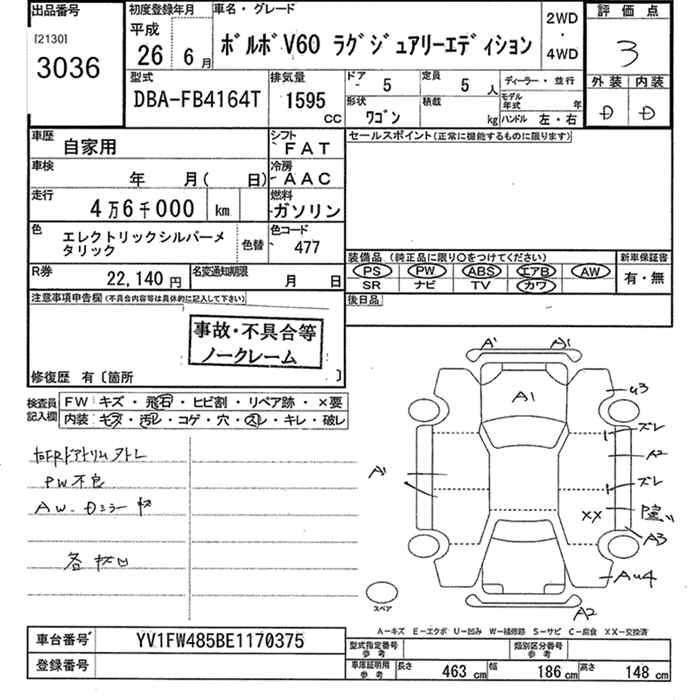 出品番号
[2130]
3036
初度登録年月
平成
26年 6月
車名・グレード
ボルボV60 ラグジュアリーエディション
2WD
・
4WD
評価点
3
外装 内装
D D
型式
DBA-FB4164T
排気量
1595
CC
ドア
- 5
定員
5人
ディーラー・並行
形状
ワゴン
積載
kg
モデル年式 年
ハンドル 左・右
車歴
自家用
シフト
FAT
車検
年 月( 日)
冷房
AAC
走行
4万6千000 km
燃料
ガソリン
色
エレクトリックシルバーメ
タリック
色替
色コード
477
R券
22,140円
名変通知期限
月 日
セールスポイント(正常に機能するものに限ります)
装備品(純正品に限り○をつけてください)
PS PW ABS エアB AW
SR ナビ TV カワ
新車保証書
有・無
後日品
注意事項申告欄(不具合内容等は具体的に記入して下さい)
事故・不具合等
ノークレーム
修復歴 有〔箇所 〕
検査員
記入欄
FW キズ・飛石・ヒビ割・リペア跡・×要
内装:キズ・汚レ・コゲ・穴・スレ・キレ・破レ
PW不良
各
A' A'
A1
U3
ズレ
A2
ズレ
XX
A3
AU4
A2
A'
スペア
A-キズ E-エクボ U-凹み W-補修跡 S-サビ C-腐食 XX-交換済
車台番号
YV1FW485BE1170375
登録番号
型式指定番号
参考
類別区分番号
参考
車庫証明用
参考
長さ 463cm 幅 186cm 高さ 148cm